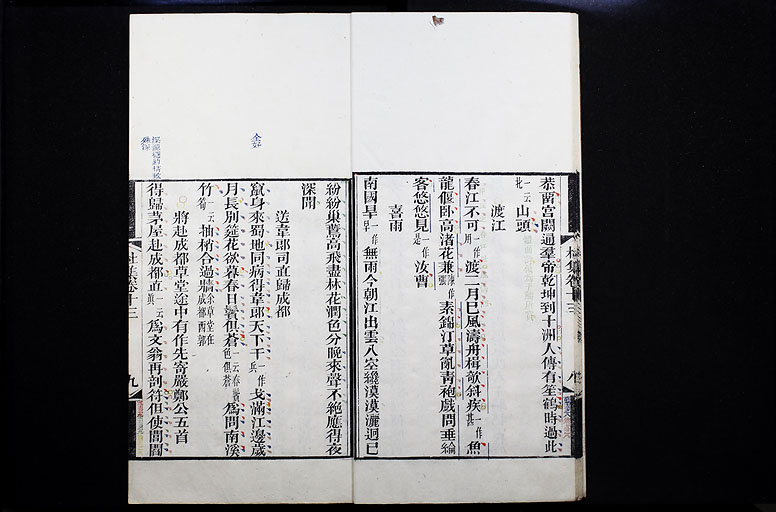 恭蘭宮闕通羣帝乾坤到十洲人傳有笙鶴時過此
一云北山頭
渡江
春江不可一作用渡二月已風濤舟楫欹斜疾一作甚魚
龍偃臥高渚花兼素錦汀草亂青袍戲問垂綸
客悠悠見一作是汝曹
喜雨
南國旱一作早無雨今朝江出雲入空纔漠漠灑迥已
紛紛巢鷰高飛盡林花潤色分晚來聲不絕應得夜
深聞
送韋郎司直歸成都
竄身來蜀地同病得韋郎天下干一作兵戈滿江邊歲
月長別筵花欲暮春日鬢俱蒼一云春鬢色俱蒼爲問南溪
竹一云筍抽梢合過牆余草堂在成都西郭
將赴成都草堂途中有作先寄嚴鄭公五首
得歸茅屋赴成都直一云眞爲文翁再剖符但使閭閻
杜集卷十三
八
杜集卷十三
九